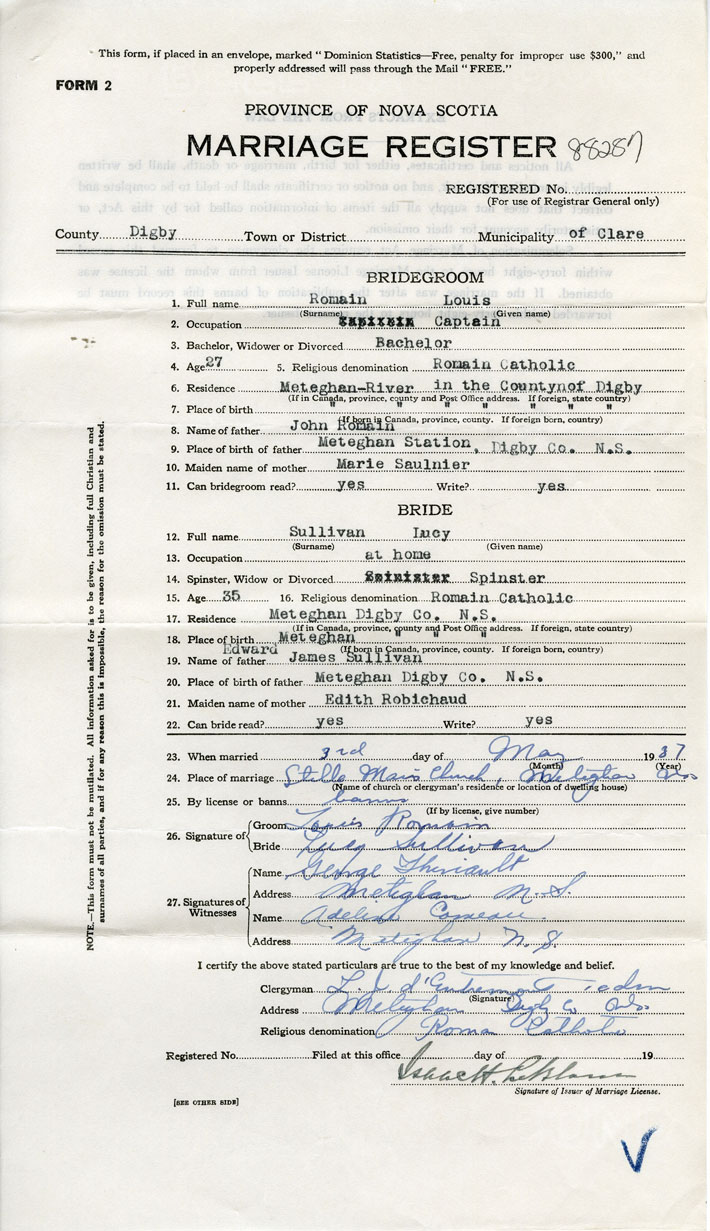 This form, if placed in an envelope, marked "Dominion Statistics—Free, penalty for improper use $300," and
properly addressed will pass through the Mail "FREE."
FORM 2
PROVINCE OF NOVA SCOTIA
MARRIAGE REGISTER 88287
REGISTERED No.
(For use of Registrar General only)
County Digby Town or District Municipality of Clare
BRIDEGROOM
1. Full name Romain Louis
(Surname) (Given name)
2. Occupation Captain
3. Bachelor, Widower or Divorced Bachelor
4. Age 27 5. Religious denomination Romain Catholic
6. Residence Meteghan-River in the Countynof Digby
(If in Canada, province, county and Post Office address. If foreign, state country)
7. Place of birth " " " " " "
(If born in Canada, province, county. If foreign born, country)
8. Name of father John Romain
9. Place of birth of father Meteghan Station, Digby Co. N.S.
10. Maiden name of mother Marie Saulnier
11. Can bridegroom read? yes Write? yes
BRIDE
12. Full name Sullivan Lucy
(Surname) (Given name)
13. Occupation at home
14. Spinster, Widow or Divorced Spinster
15. Age 35 16. Religious denomination Romain Catholic
17. Residence Meteghan Digby Co. N.S.
(If in Canada, province, county and Post Office address. If foreign, state country)
18. Place of birth Meteghan " " "
(If born in Canada, province, county. If foreign born, country)
Edward
19. Name of father James Sullivan
20. Place of birth of father Meteghan Digby Co. N.S.
21. Maiden name of mother Edith Robichaud
22. Can bride read? yes Write? yes
23. When married 3rd day of May 1937
(Month) (Year)
24. Place of marriage Stella Maris Church, Meteghan
(Name of church or clergyman's residence or location of dwelling house)
25. By license or banns banns
(If by license, give number)
26. Signature of Groom Louis Romain
Bride Lucy Sullivan
27. Signatures of Witnesses Name George Theriault
Address Meteghan N.S.
Name Adeline Comeau
Address Meteghan N.S.
I certify the above stated particulars are true to the best of my knowledge and belief.
Clergyman L. J. d'Entremont
(Signature)
Address Meteghan Digby Co
Religious denomination Roman Catholic
Registered No. Filed at this office day of 19
Isaac H.
Signature of Issuer of Marriage License.
[SEE OTHER SIDE]
NOTE.—This form must not be mutilated. All information asked for is to be given, including full Christian and
surnames of all parties, and if for any reason this is impossible, the reason for the omission must be stated.